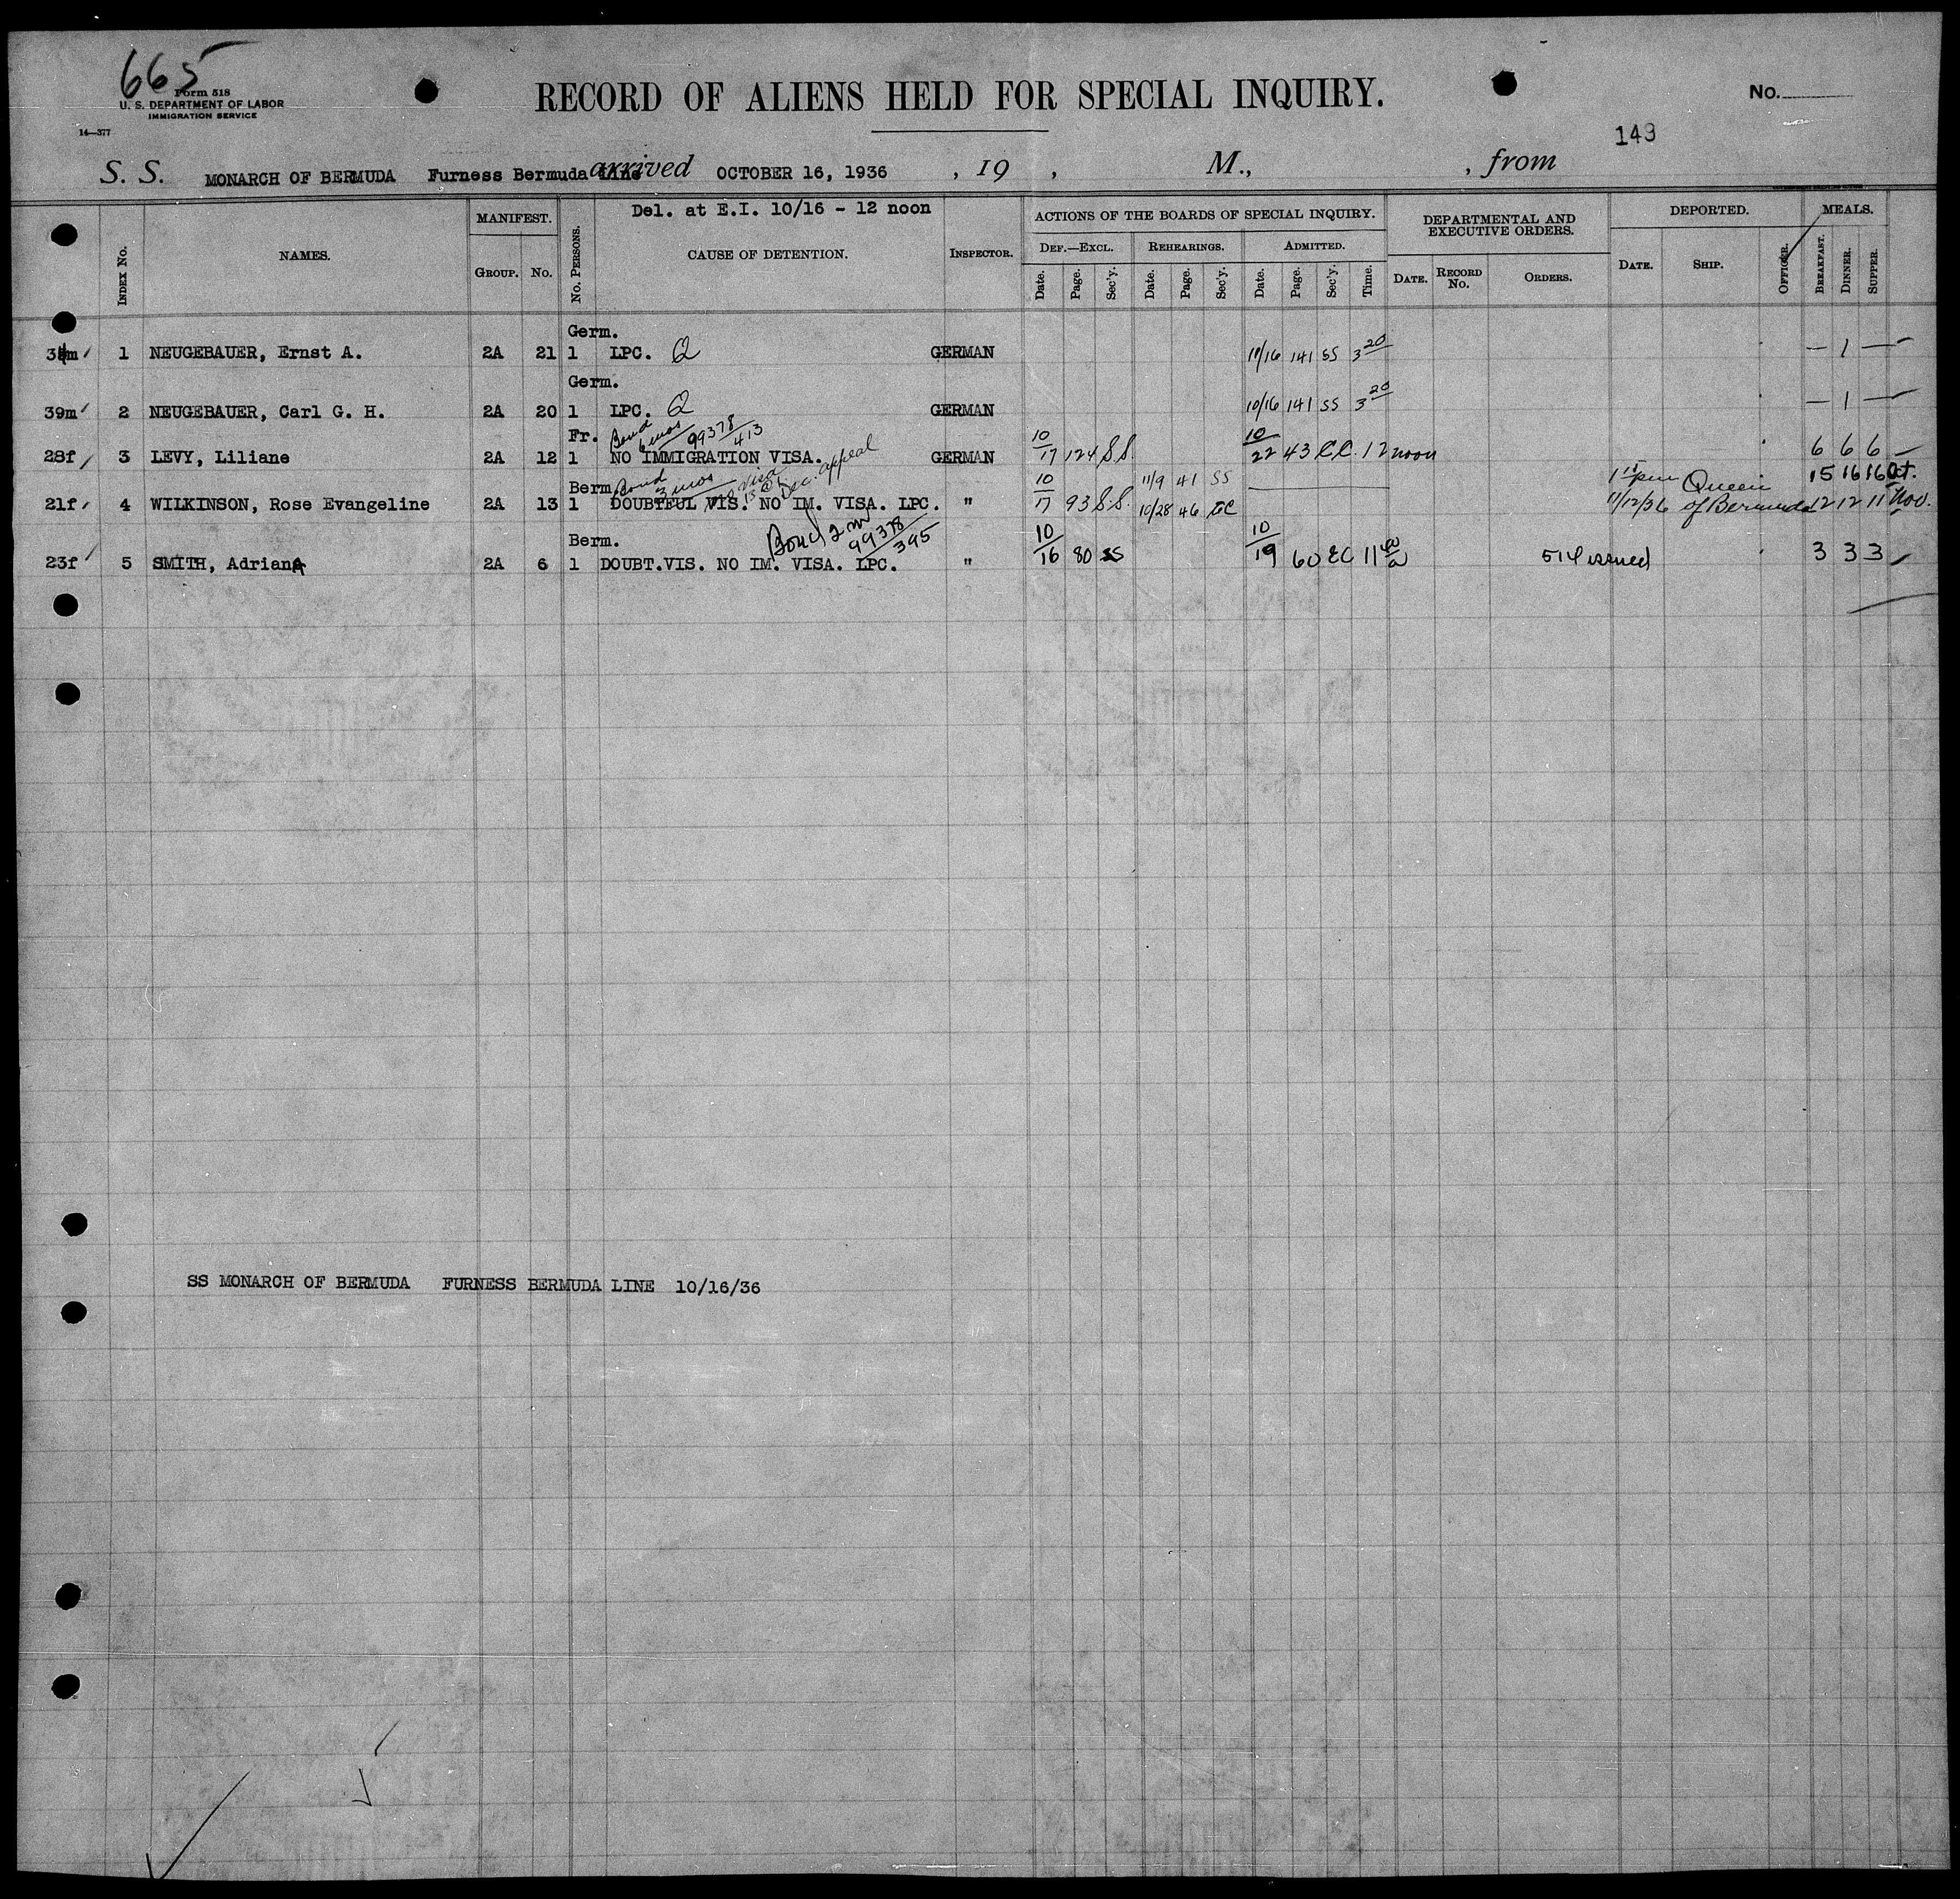 665
Form 518
U. S. DEPARTMENT OF LABOR
IMMIGRATION SERVICE
14—377
RECORD OF ALIENS HELD FOR SPECIAL INQUIRY.
No.
143
S. S. MONARCH OF BERMUDA Furness Bermuda Line arrived OCTOBER 16, 1936 , 19 , M., , from
Del. at E.I. 10/16 - 12 noon
INDEX No. NAMES. MANIFEST. GROUP. No. No. PERSONS. CAUSE OF DETENTION. INSPECTOR. ACTIONS OF THE BOARDS OF SPECIAL INQUIRY. DEF.—EXCL. Date. Page. Sec'y. REHEARINGS. Date. Page. Sec'y. ADMITTED. Date. Page. Sec'y. Time. DEPARTMENTAL AND EXECUTIVE ORDERS. DATE. RECORD No. ORDERS. DEPORTED. DATE. SHIP. OFFICER. MEALS. BREAKFAST. DINNER. SUPPER.
Germ.
1 NEUGEBAUER, Ernst A. 2A 21 1 LPC. Q GERMAN 10/16 141 SS 3 20 — 1 —
Germ.
39m 2 NEUGEBAUER, Carl G. H. 2A 20 1 LPC. Q GERMAN 10/16 141 SS 3 20 — 1 —
Fr. Bond 6 mos 99378/413
28f 3 LEVY, Liliane 2A 12 1 NO IMMIGRATION VISA. GERMAN 10/17 124 S.S. 10/22 43 12 noon 6 6 6
Berm. Bond 3 mos no visa Dec. appeal 11/9 41 SS 1 15 pm Queen 15 16 16 Oct.
21f 4 WILKINSON, Rose Evangeline 2A 13 1 DOUBTFUL VIS. NO IM. VISA. LPC. " 10/17 93 S.S. 10/28 46 EC 11/12/36 of Bermuda 12 12 11 Nov.
Berm. Bond 2 m 99378/395
23f 5 SMITH, Adriana 2A 6 1 DOUBT.VIS. NO IM. VISA. LPC. " 10/16 80 SS 10/19 60 EC 11 514 issued 3 3 3
SS MONARCH OF BERMUDA FURNESS BERMUDA LINE 10/16/36